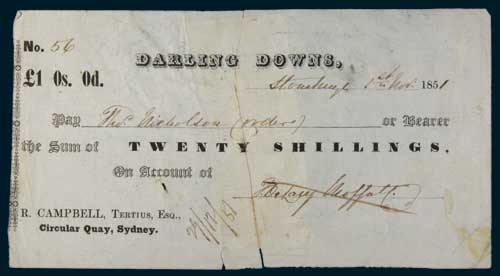 No. 56
DARLING DOWNS,
£1 0s. 0d.
Stonehenge 1st Novr. 1851
Pay Thos. Nicholson (order) or Bearer
the Sum of TWENTY SHILLINGS,
On Account of
Moffatt
R. CAMPBELL, TERTIUS, ESQ.,
Circular Quay, Sydney.
29/12/51